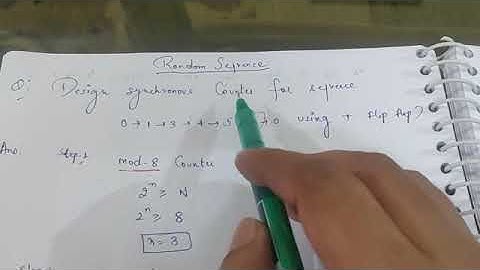 Random Sequence
Q: Design synchronous Counter for sequence
0 → 1 → 3 → 4 → 5 → 0 using T flip flop?
Ans. Step 1
mod-8 Counter
2ⁿ ≥ N
2ⁿ ≥ 8
n = 3